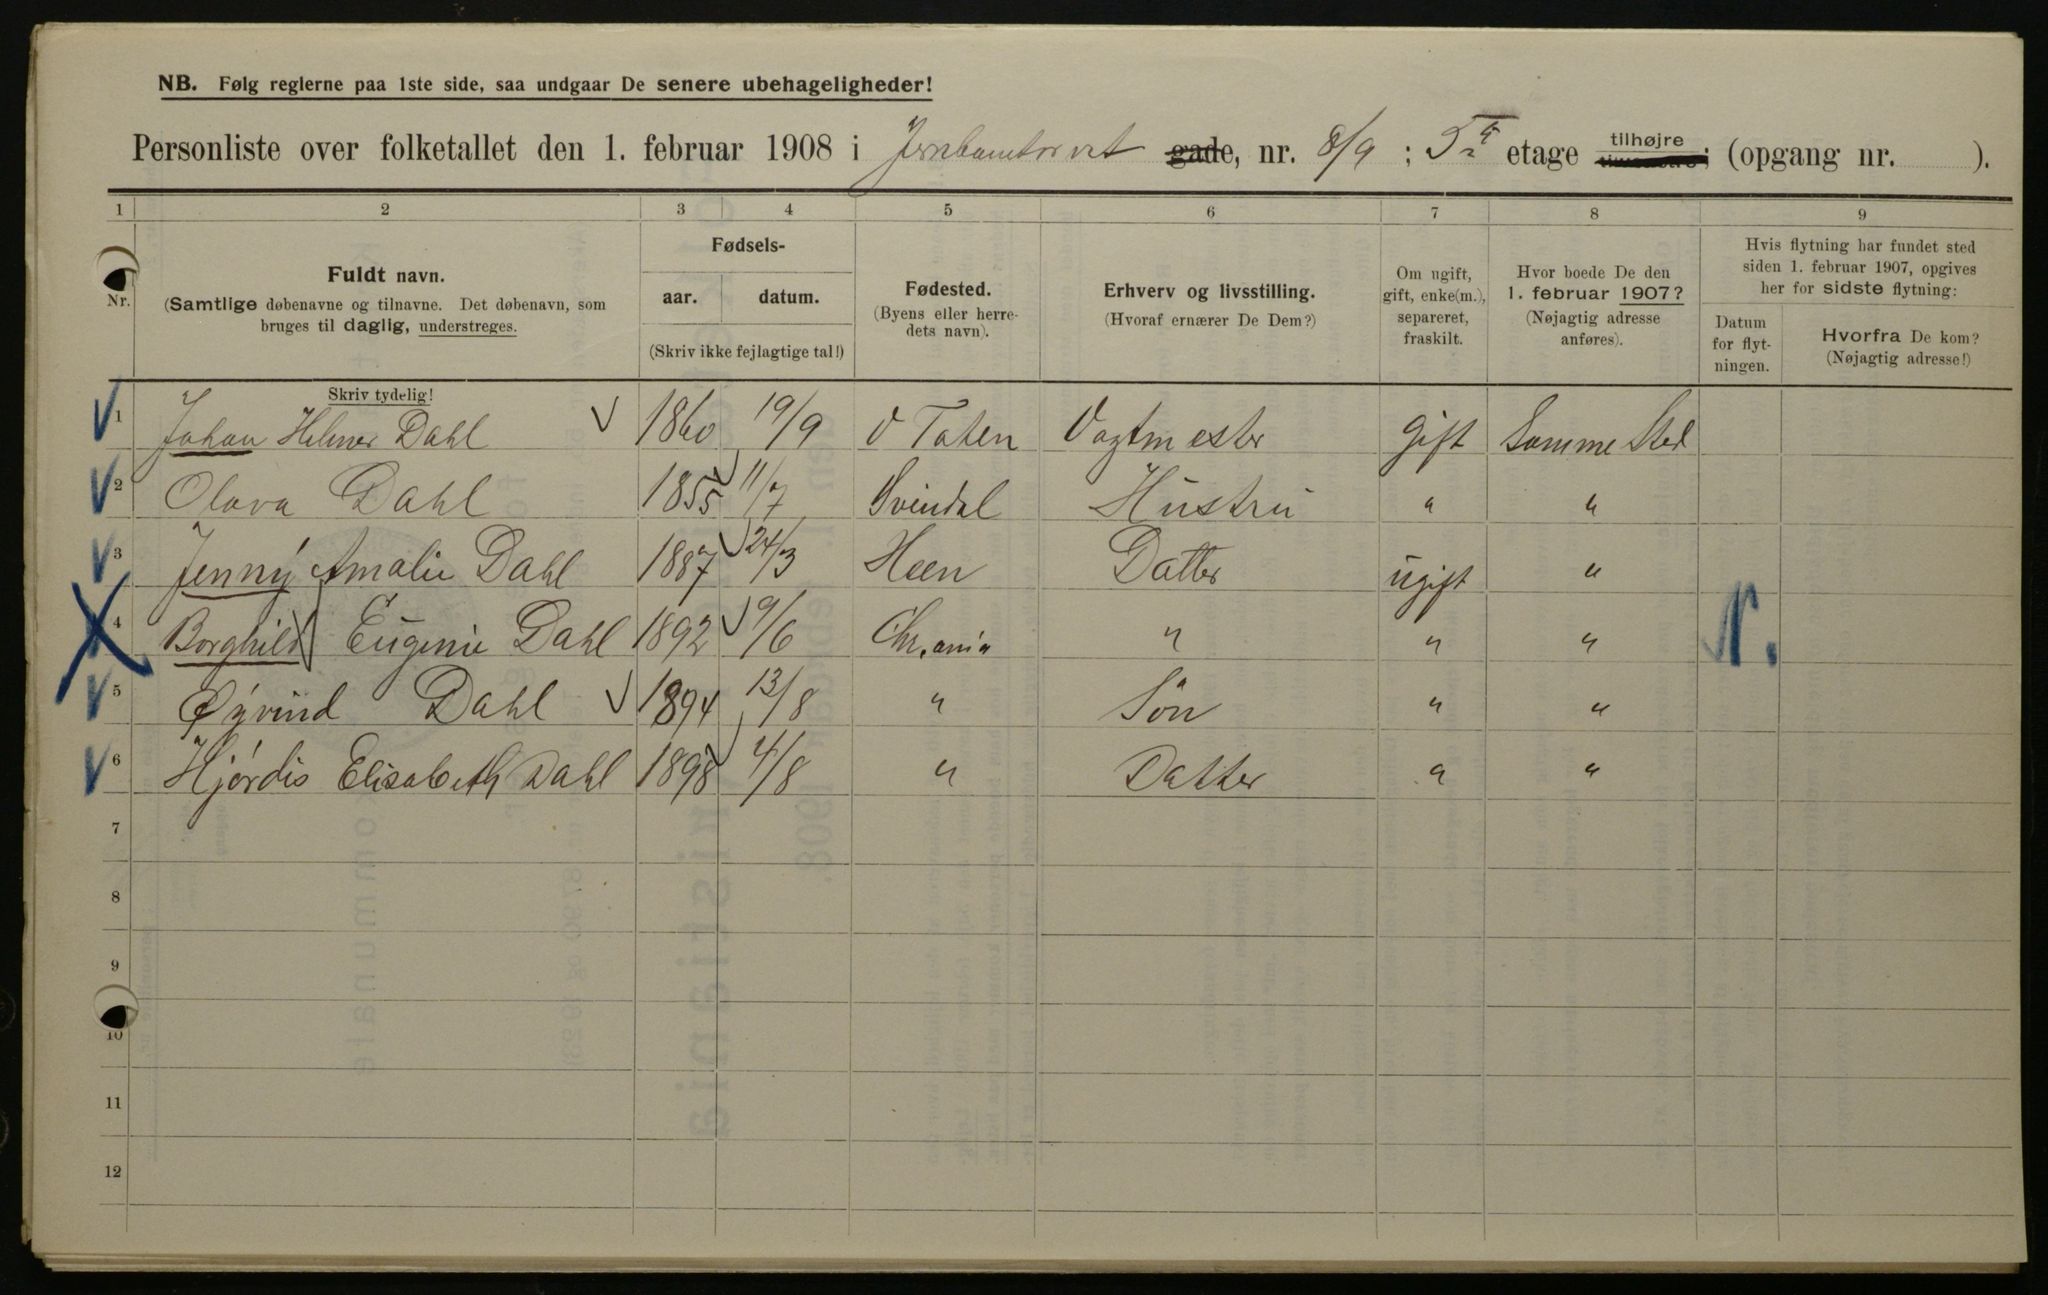 NB. Følg reglerne paa 1ste side, saa undgaar De senere ubehageligheder!
Personliste over folketallet den 1. februar 1908 i Jernbanetorvet gade, nr. 8/9 ; 5 etage tilhøjre ; (opgang nr. ).
1 2 3 4 5 6 7 8 9
Nr.
Fuldt navn.
(Samtlige døbenavne og tilnavne. Det døbenavn, som
bruges til daglig, understreges.
Skriv tydelig!
Fødsels-
aar. datum.
(Skriv ikke fejlagtige tal!)
Fødested.
(Byens eller herre-
dets navn).
Erhverv og livsstilling.
(Hvoraf ernærer De Dem?)
Om ugift,
gift, enke(m.),
separeret,
fraskilt.
Hvor boede De den
1. februar 1907?
(Nøjagtig adresse
anføres).
Hvis flytning har fundet sted
siden 1. februar 1907, opgives
her for sidste flytning:
Datum
for flyt-
ningen.
Hvorfra De kom?
(Nøjagtig adresse!)
1 Johan Helmer Dahl 1860 19/9 V Toten Vagtmester gift Samme Sted
2 Olava Dahl 1855 11/7 Svindal Hustru " "
3 Jenny Amalie Dahl 1887 24/3 Heen Datter ugift "
4 Borghild Eugenie Dahl 1892 9/6 Chr.ania " " " N.
5 Øyvind Dahl 1894 13/8 " Søn " "
6 Hjördis Elisabeth Dahl 1898 4/8 " Datter " "
7
8
9
10
11
12